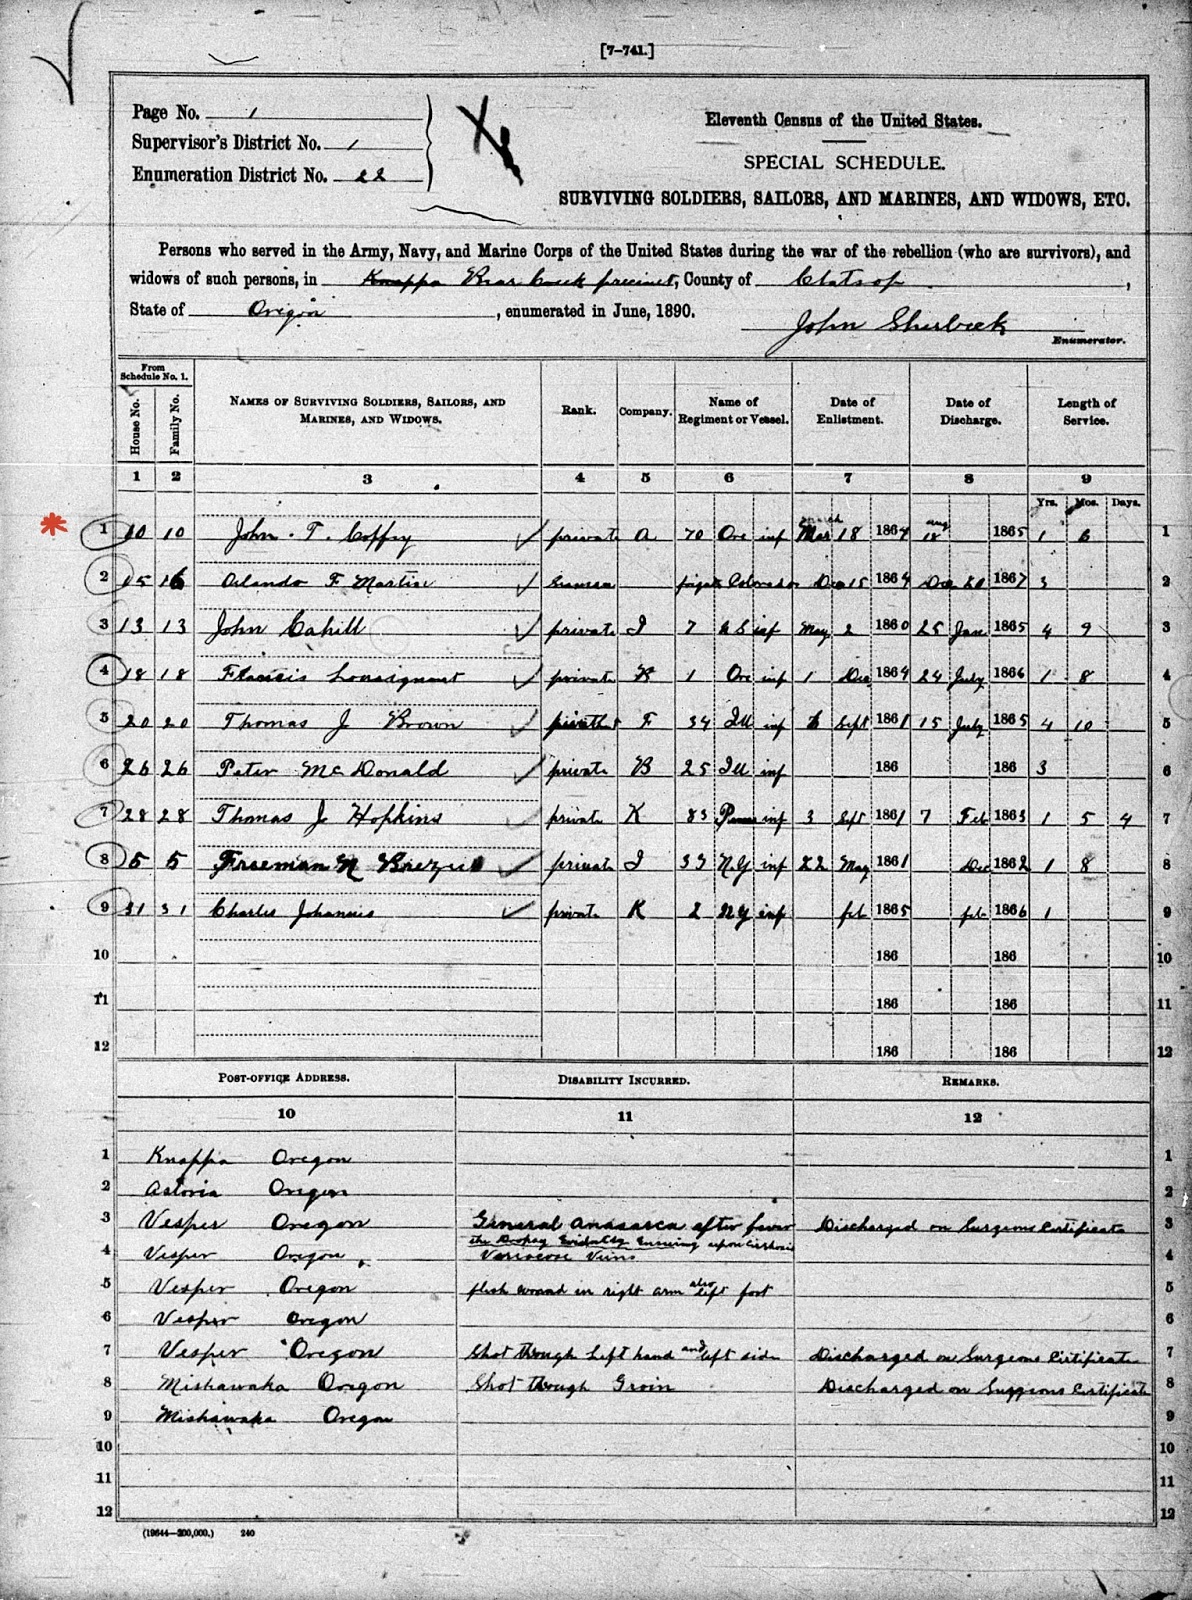 [7-741.]
Page No. 1
Supervisor's District No. 1
Enumeration District No. 22
Eleventh Census of the United States.
SPECIAL SCHEDULE.
SURVIVING SOLDIERS, SAILORS, AND MARINES, AND WIDOWS, ETC.
Persons who served in the Army, Navy, and Marine Corps of the United States during the war of the rebellion (who are survivors), and
widows of such persons, in Knappa Bear Creek precinct, County of Clatsop,
State of Oregon, enumerated in June, 1890.
John Sherbeck
Enumerator.
From Schedule No. 1.
House No. Family No. NAMES OF SURVIVING SOLDIERS, SAILORS, AND MARINES, AND WIDOWS. Rank. Company. Name of Regiment or Vessel. Date of Enlistment. Date of Discharge. Length of Service.
1 2 3 4 5 6 7 8 9
Yrs. Mos. Days.
1 10 10 John T. Coffey private A 70 Ore inf Mar 18 1864 aug 18 1865 1 6 1
2 15 16 Orlando F Martin frigate Colorado Dec 15 1864 Dec 20 1867 3 2
3 13 13 John Cahill private I 7 U S inf May 2 1860 25 Jan 1865 4 9 3
4 18 18 Francis Lousignaut private K 1 Ore inf 1 Dec 1864 24 July 1866 1 8 4
5 20 20 Thomas J Brown private F 34 Ill inf 6 Sept 1861 15 July 1865 4 10 5
6 26 26 Peter McDonald private B 25 Ill inf 186 186 3 6
7 28 28 Thomas J Hopkins private K 83 Penn inf 3 Sept 1861 7 Feb 1863 1 5 4 7
8 5 5 Freeman N private I 33 N.Y inf 22 May 1861 Dec 1862 1 8 8
9 31 31 Charles Johannis private K 2 NY inf feb 1865 feb 1866 1 9
10 186 186 10
11 186 186 11
12 186 186 12
POST-OFFICE ADDRESS. DISABILITY INCURRED. REMARKS.
10 11 12
1 Knappa Oregon 1
2 Astoria Oregon 2
3 Vesper Oregon General Anasarca after fever Discharged on Surgeons Certificate 3
the Dropsy Evidently Ensuing upon
4 Vesper Oregon Varicose Veins 4
5 Vesper Oregon flesh wound in right arm also left foot 5
6 Vesper Oregon 6
7 Vesper Oregon Shot through Left hand and left side Discharged on Surgeons Certificate 7
8 Mishawaka Oregon Shot through Groin Discharged on Surgeons Certificate 8
9 Mishawaka Oregon 9
10 10
11 11
12 12
(19644—200,000.) 240